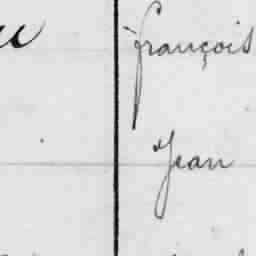 françois
Jean